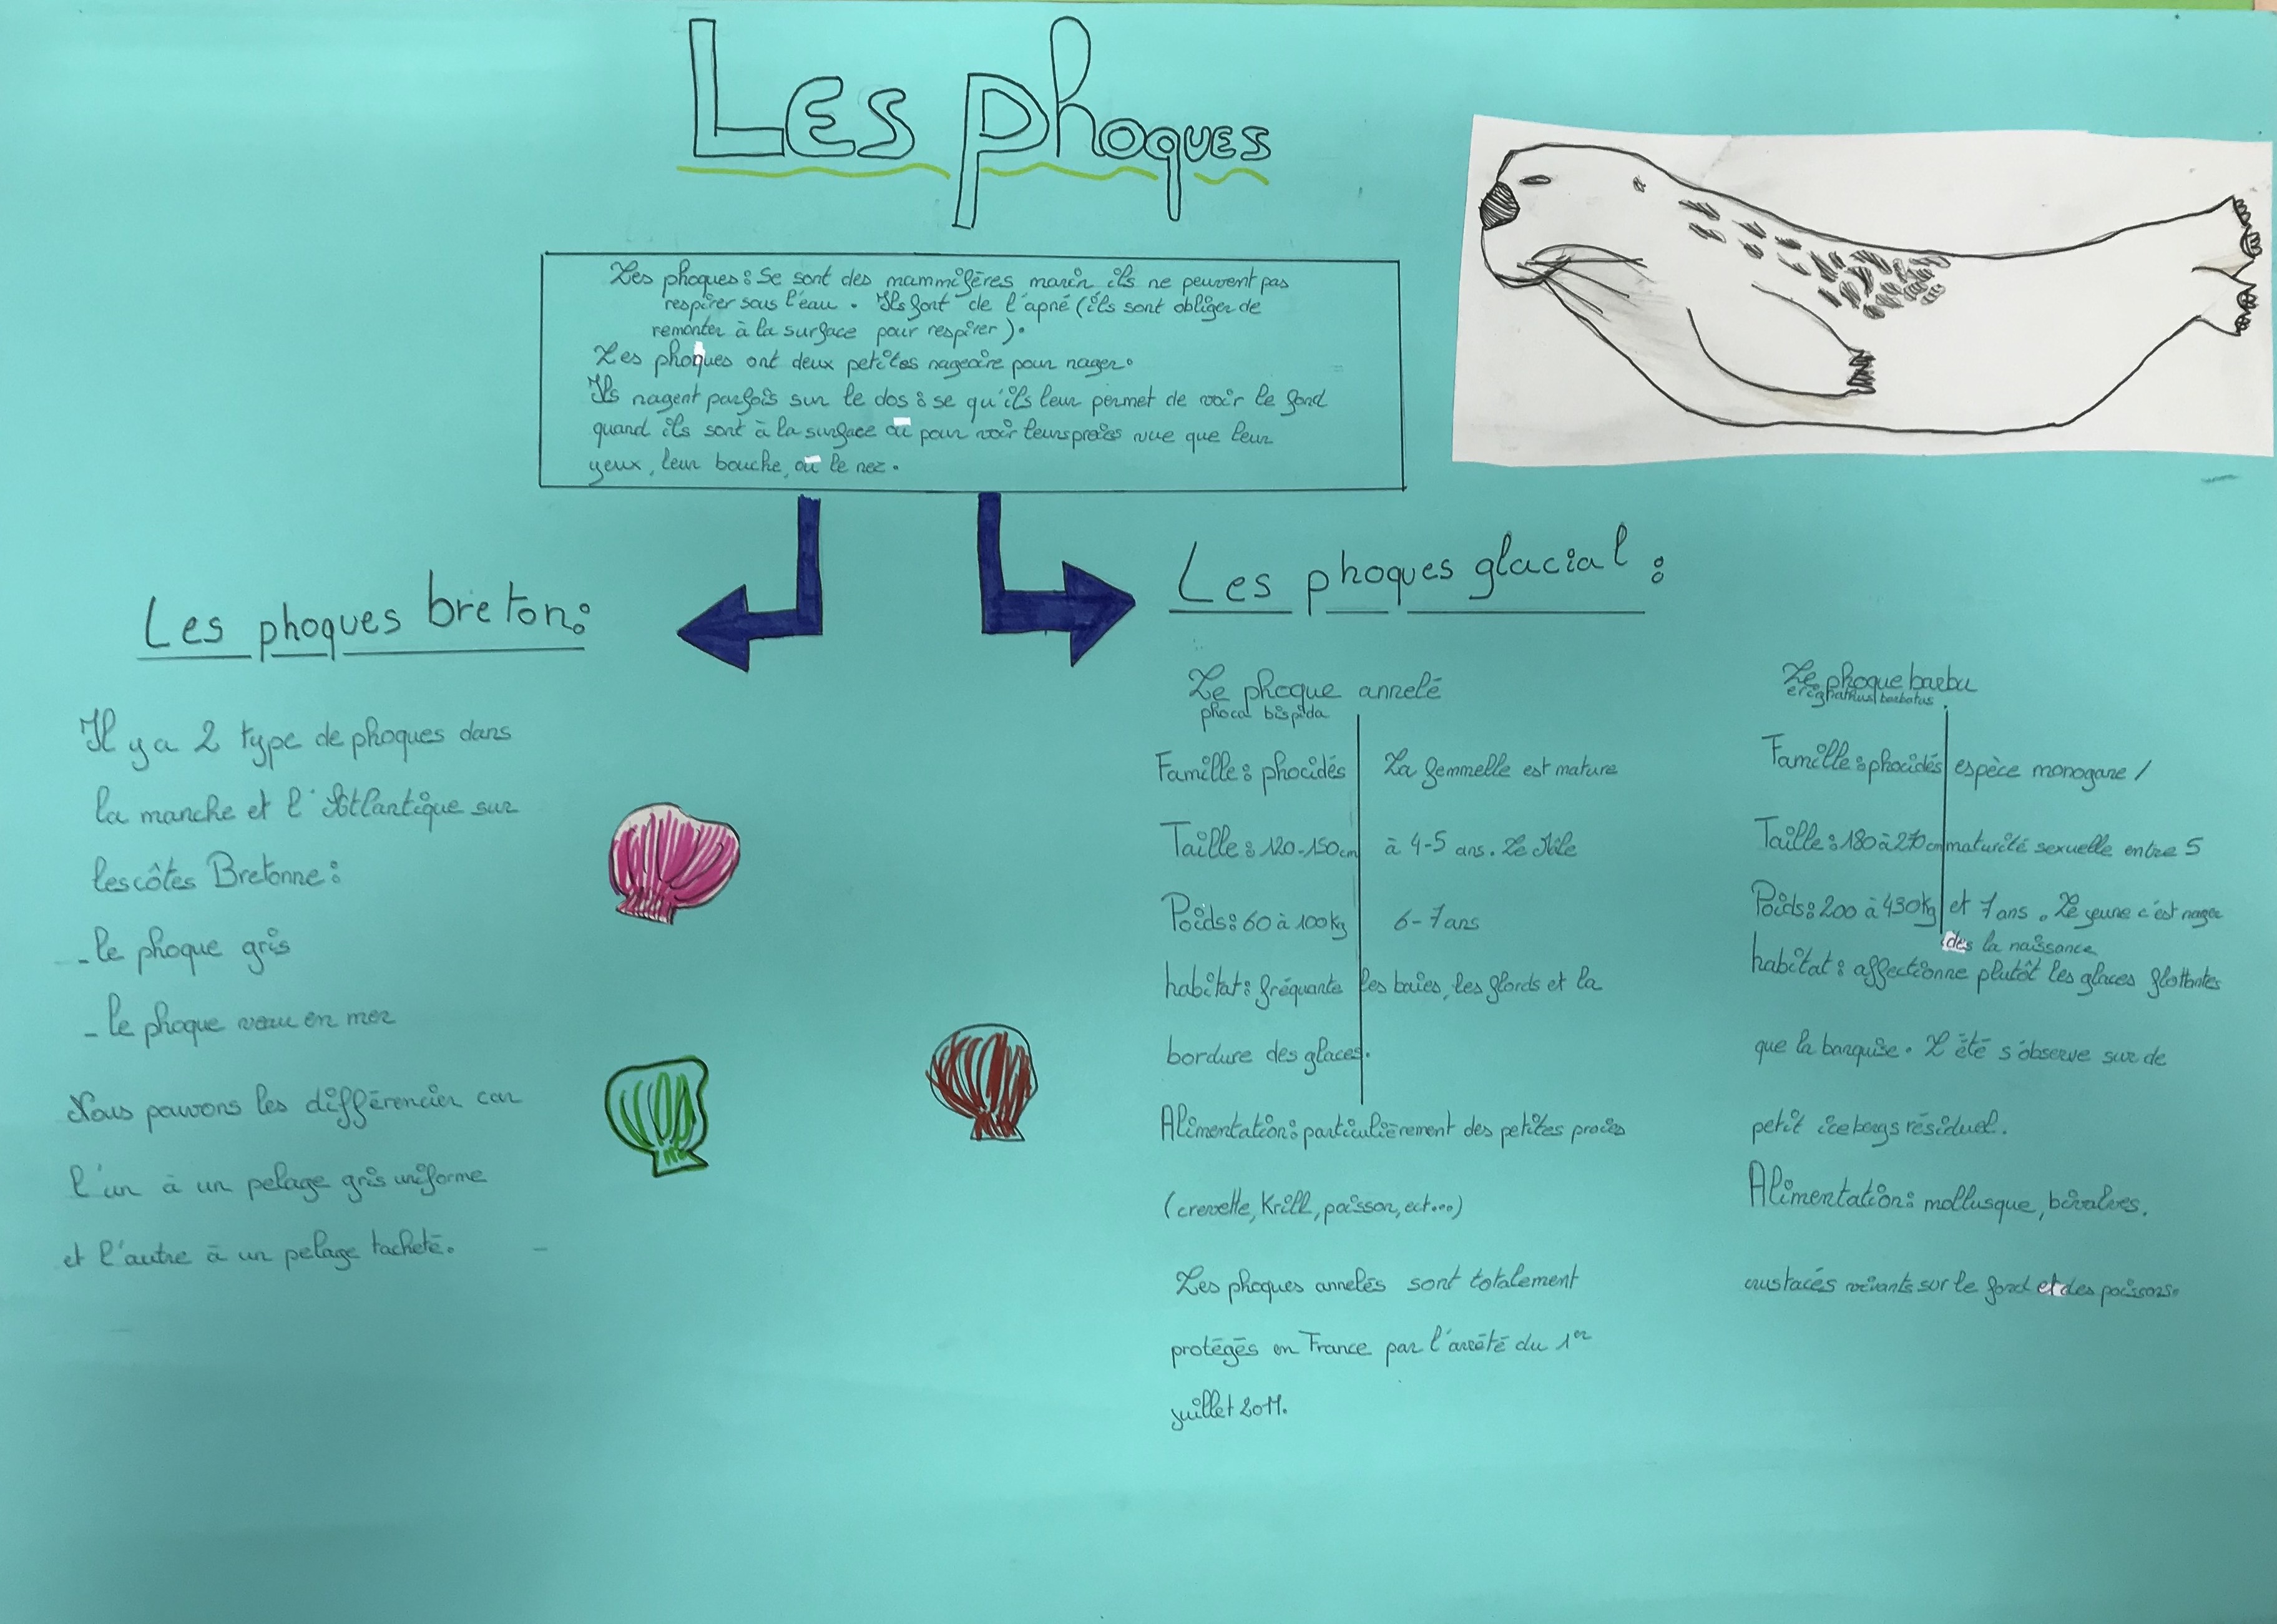 Les phoques
Les phoques : Se sont des mammifères marin ils ne peuvent pas
respirer sous l'eau . Ils font de l'apné (ils sont obliger de
remonter à la surface pour respirer).
Les phoques ont deux petites nageoire pour nager.
Ils nagent parfois sur le dos : se qu'ils leur permet de voir le fond
quand ils sont à la surface ou pour voir leurs proies vue que leur
yeux, leur bouche, ou le nez.
Les phoques breton :
Il y a 2 type de phoques dans
la manche et l'Atlantique sur
les côtes Bretonne :
- le phoque gris
- le phoque veau en mer
Nous pouvons les différencier car
l'un à un pelage gris uniforme
et l'autre à un pelage tacheté.
Les phoques glacial :
Le phoque annelé
phoca bispida
Famille : phocidés La femmelle est mature
Taille : 120-150cm à 4-5 ans. Le Mâle
Poids : 60 à 100kg 6-7 ans
habitat : fréquante les baies, les fjords et la
bordure des glaces.
Alimentation : particulièrement des petites proies
(crevette, Krill, poisson, ect...)
Les phoques annelés sont totalement
protégés en France par l'arrêté du 1er
juillet 2011.
Le phoque barbu
barbatus
Famille : phocidés espèce monogame /
Taille : 180 à 270cm maturité sexuelle entre 5
Poids : 200 à 430kg et 7 ans. Le jeune c'est nager
dès la naissance
habitat : affectionne plutôt les glaces flottantes
que la banquise. L'été s'observe sur de
petit icebergs résiduel.
Alimentation : mollusque, bivalves,
crustacés vivants sur le fond et des poissons.